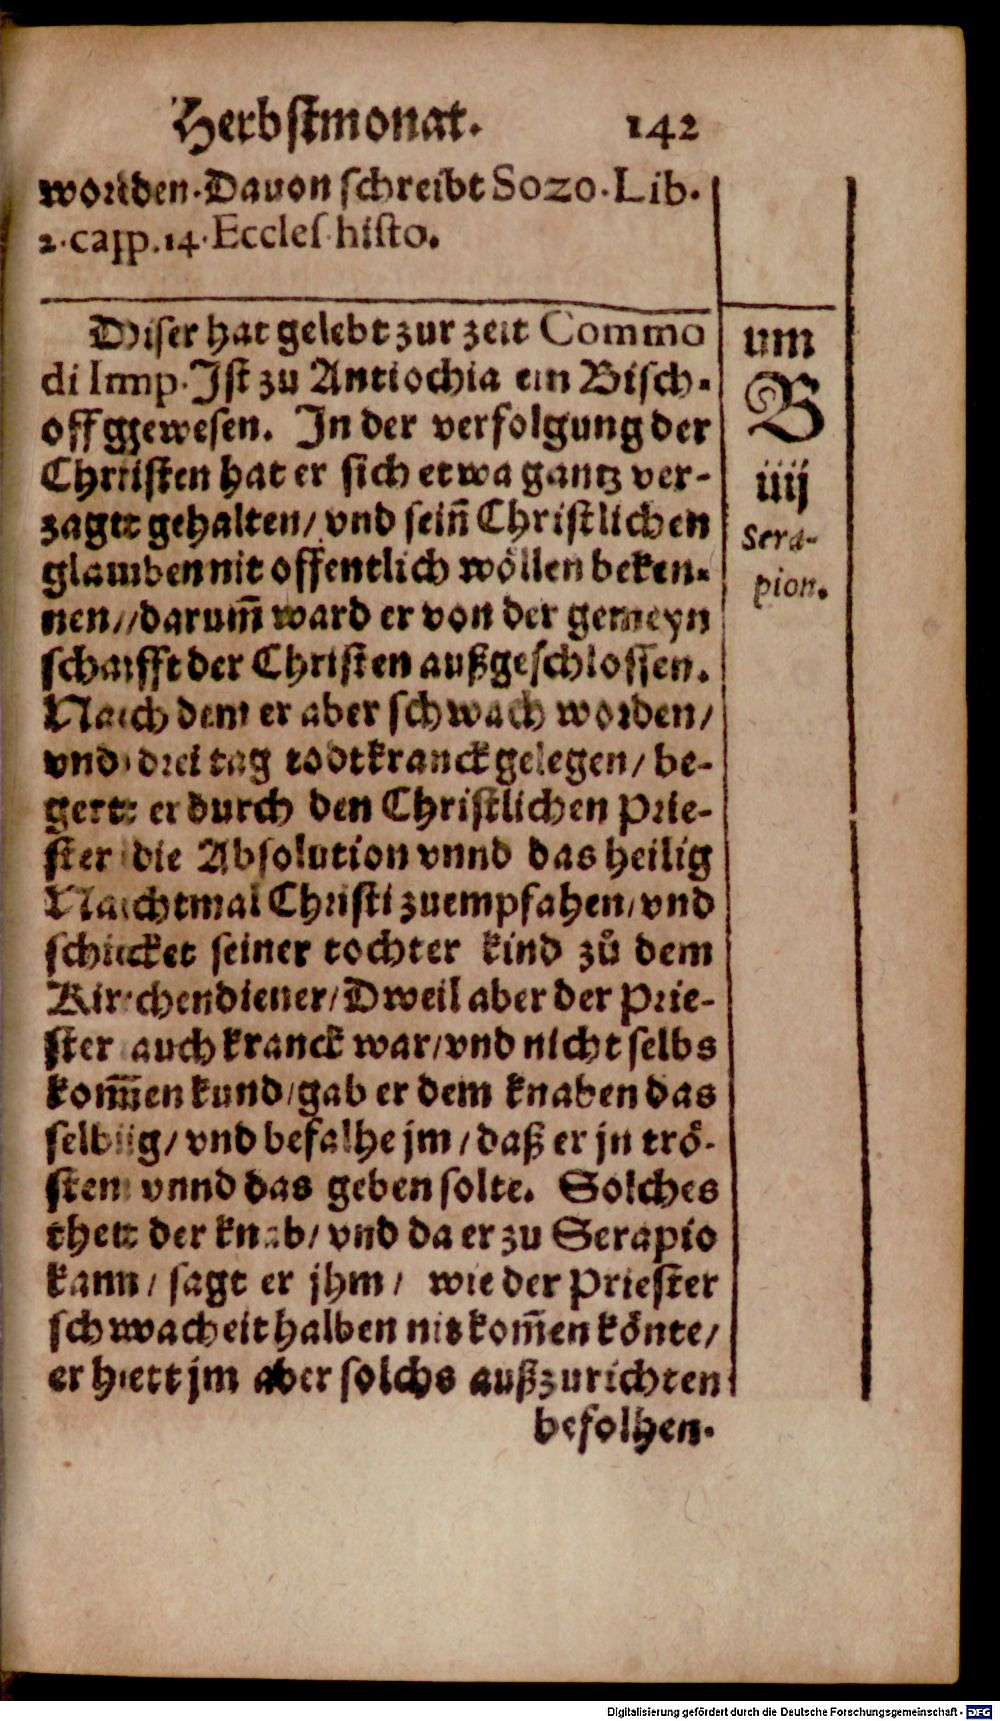 Herbstmonat. 142
worden. Dauon schreibt Sozo. Lib.
2. cap. 14. Eccles. histo.
Diser hat gelebt zur zeit Commo
di Imp. Jst zu Antiochia ein Bisch-
off gewesen. Jn der verfolgung der
Christen hat er sich etwa gantz ver-
zagt gehalten/ vnd sein̄ Christlichen
glauben nit offentlich wöllen beken-
nen/ darum̄ ward er von der gemeyn
schafft der Christen außgeschlossen.
Nach dem er aber schwach worden/
vnd drei tag todtkranck gelegen/ be-
gert er durch den Christlichen Prie-
ster die Absolution vnnd das heilig
Nachtmal Christi zuempfahen/ vnd
schicket seiner tochter kind zů dem
Kirchendiener/ Dweil aber der Prie-
ster auch kranck war/ vnd nicht selbs
kom̄en kund/ gab er dem knaben das
selbig/ vnd befalhe jm/ daß er jn trö-
sten vnnd das geben solte. Solches
thet der knab/ vnd da er zu Serapio
kam/ sagt er jhm/ wie der Priester
schwacheit halben nit kom̄en könte/
er hett jm aber solchs außzurichten
befolhen.
um
B
iiij
Sera-
pion.
Digitalisierung gefördert durch die Deutsche Forschungsgemeinschaft - DFG